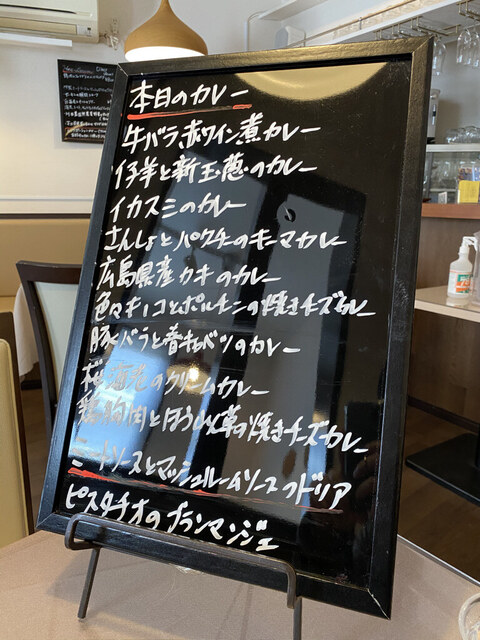 本日のカレー
牛バラ赤ワイン煮カレー
仔羊と新玉葱のカレー
イカスミのカレー
さんしょとパクチーのキーマカレー
広島県産カキのカレー
色々キノコとポルチーニの焼きチーズカレー
豚バラと春キャベツのカレー
桜海老のクリームカレー
鶏胸肉とほうれん草の焼きチーズカレー
ミートソースとマッシュルームソースのドリア
ピスタチオのブランマンジェ